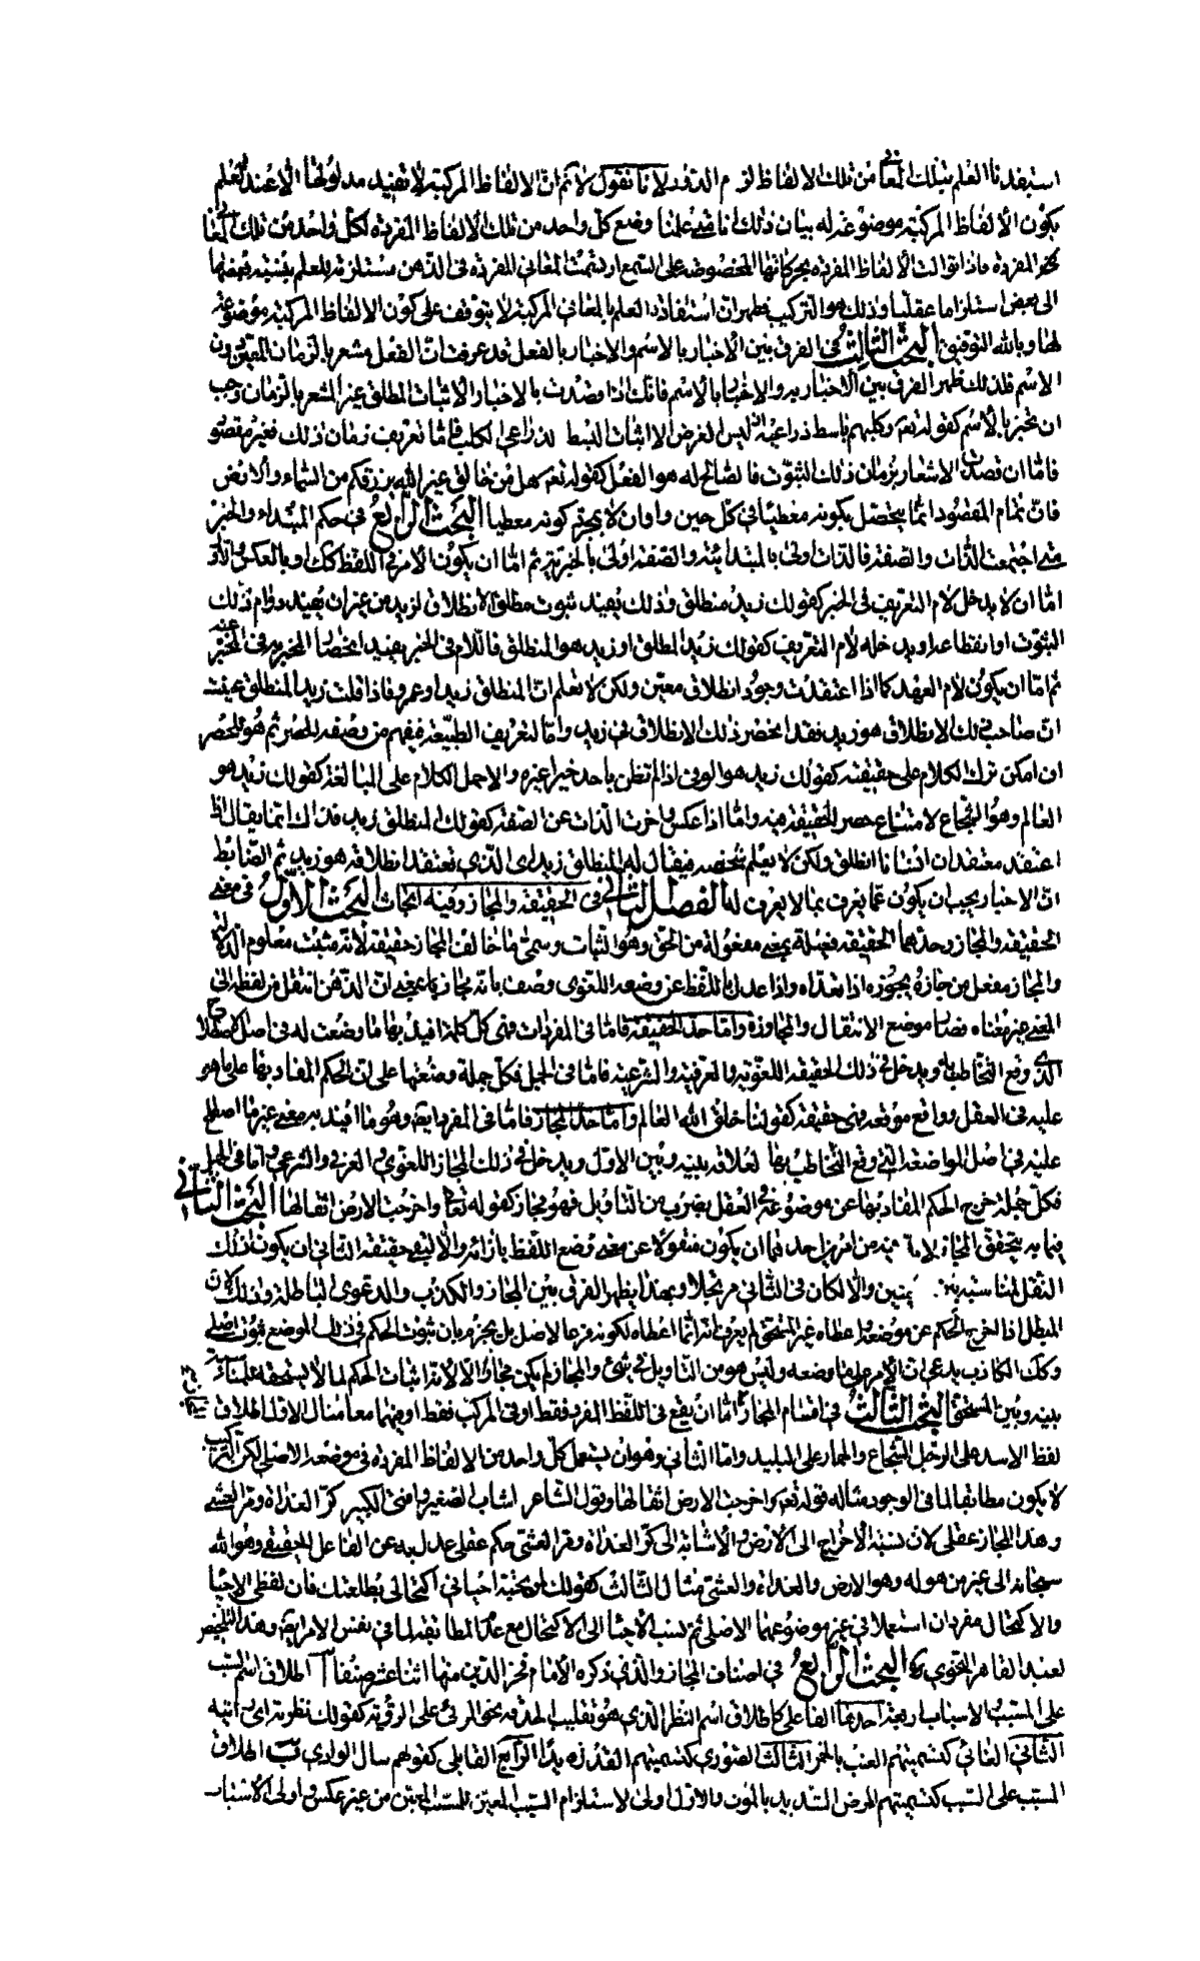 استفدنا العلم بتلك المعانى من تلك الالفاظ لزم الدور لانا نقول لا نم ان الالفاظ المركبة لا تفيد مدلولها الا عند العلم
بكون الالفاظ المركبة موضوعة له بيان ذلك انا متى علمنا وضع كل واحد من تلك الالفاظ المفردة لكل واحد من تلك المعانى
المفردة فاذا توالت الالفاظ المفردة بحركاتها المخصوصة على السمع ارتسمت المعانى المفردة فى الذهن مستلزمة للعلم بنسبة بعضها
الى بعض استلزاما عقليا وذلك هو التركيب فظهر ان استفادة العلم بالمعانى المركبة لا يتوقف على كون الالفاظ المركبة موضوعة
لها وبالله التوفيق البحث الثالث فى الفرق بين الاخبار بالاسم والاخبار بالفعل قد عرفت ان الفعل مشعر بالزمان المعين دون
الاسم فلذلك ظهر الفرق بين الاخبار به والاخبار بالاسم فانك اذا قصدت بالاخبار الاثبات المطلق غير المشعر بالزمان وجب
ان تخبر بالاسم كقوله تعم وكلبهم باسط ذراعيه اذ ليس الغرض الا اثبات البسط لذراعى الكلب فاما تعريف زمان ذلك فغير مقصود
فاما ان قصدت الاشعار بزمان ذلك الثبوت فالصالح له هو الفعل كقوله تعم هل من خالق غير الله يرزقكم من السماء والارض
فان تمام المقصود انما يحصل بكونه معطيا فى كل حين واوان لا بمجرد كونه معطيا البحث الرابع فى حكم المبتداء والخبر
متى اجتمعت الذات والصفة فالذات اولى بالمبتدائية والصفة اولى بالخبرية ثم اما ان يكون الامر فى اللفظ كك او بالعكس والاول
اما ان لا يدخل لام التعريف فى الخبر كقولك زيد منطلق وذلك يفيد ثبوت مطلق الانطلاق لزيد من غير ان يفيد دوام ذلك
الثبوت او انقطاعه او يدخله لام التعريف كقولك زيد المنطلق او زيد هو المنطلق فاللام فى الخبر يفيد انحصار المخبر به فى المخبر عنه
ثم اما ان يكون لام العهد كما اذا اعتقدت وجود انطلاق معين ولكن لا تعلم ان المنطلق زيد او عمرو فاذا قلت زيد المنطلق عينت
ان صاحب ذلك الانطلاق هو زيد فقد انحصر ذلك الانطلاق فى زيد واما لتعريف الطبيعة فيفهم من وصفه الحصر ثم هو الحصر
ان امكن ترك الكلام على حقيقته كقولك زيد هو الوفى اذا لم تظن باحد خيرا غيره والا حمل الكلام على المبالغة كقولك زيد هو
العالم وهو الشجاع لامتناع حصر الحقيقة فيه واما اذا عكس واخرت الذات عن الصفة كقولك المنطلق زيد فذلك انما يقال اذا
اعتقد معتقد ان انسانا انطلق ولكن لا يعلم شخصه فيقال له المنطلق زيد اى الذى تعتقد انطلاقه هو زيد ثم الضابط
ان الاخبار يجب ان يكون عما يعرف بما لا يعرف له الفصل الثانى فى الحقيقة والمجاز وفيه ابحاث البحث الاول فى معنى
الحقيقة والمجاز وحدهما الحقيقة فعيلة بمعنى مفعولة من الحق وهو الثبات وسمى ما خالف المجاز حقيقة لانه مثبت معلوم الدلالة
والمجاز مفعل من جازه يجوزه اذا تعداه واذا عدل باللفظ عن وضعه اللغوى وصف بانه مجاز بمعنى ان الذهن انتقل من لفظه الى
المعنى غير معناه فصار موضع الانتقال والمجاوزة واما حد الحقيقة فاما فى المفردات فهى كل كلمة افيد بها ما وضعت له فى اصل الاصطلاح
الذى وقع التخاطب به ويدخل فى ذلك الحقيقة اللغوية والعرفية والشرعية فاما فى الجمل فكل جملة وضعتها على ان الحكم المفاد بها على ما هو
عليه فى العقل وواقع موقعه فهى حقيقة كقولنا خلق الله العالم واما حد المجاز فاما فى المفرد ايضا وهو ما افيد به معنى غير ما اصطلح
عليه فى اصل المواضعة التى وقع التخاطب بها لعلاقة بينه وبين الاول ويدخل فى ذلك المجاز اللغوى والعرفى والشرعى واما فى الجمل
فكل جملة خرج الحكم المفاد بها عن موضوعه فى العقل بضرب من التأويل فهو مجاز كقوله تعالى واخرجت الارض اثقالها البحث الثانى
فيما به يتحقق المجاز لابد فيه من امرين احدهما ان يكون منقولا عن معنى وضع اللفظ بازائه والا لبقى حقيقة الثانى ان يكون ذلك
النقل لمناسبة بين المعنيين والا لكان فى الثانى مرتجلا وبهذا يظهر الفرق بين المجاز والكذب والدعوى الباطلة وذلك لان
المبطل اذا اخرج الحكم عن موضعه واعطاه غير المستحق لم يعرف انه انما اعطاه لكونه فرعا لاصل بل يجزم بان ثبوت الحكم فى ذلك الموضع ثبوت اصلى
وكك الكاذب يدعى ان الامر على ما وضعه وليس هو من التأويل فى شئ والمجاز لم يكن مجازا الا لانه اثبات الحكم لما لا يستحقه لمناسبة
بينه وبين المستحق البحث الثالث فى اقسام المجاز اما ان يقع فى اللفظ المفرد فقط او فى المركب فقط او فيهما معا مثال الاول اطلاق
لفظ الاسد على الرجل الشجاع والحمار على البليد واما الثانى وهو ان يستعمل كل واحد من الالفاظ المفردة فى موضعه الاصلى لكن التركيب
لا يكون مطابقا لما فى الوجود مثاله قوله تعم واخرجت الارض اثقالها وقول الشاعر اشاب الصغير وافنى الكبير كر الغداة ومر العشى
وهذا المجاز عقلى لان نسبة الاخراج الى الارض والاشابة الى كر الغداة ومر العشى حكم عقلى عدل به عن الفاعل الحقيقى وهو الله
سبحانه الى غير من هو له وهو الارض والغداة والعشى مثال الثالث كقولك لمن تحبه احيانى اكتحالى بطلعتك فان لفظى الاحيا
والاكتحال مفردان استعملا فى غير موضوعهما الاصلى ثم نسب الاحيا الى الاكتحال مع عدم المطابقة لما فى نفس الامر ايضا وهذا التلخيص
لعبد القاهر النحوى ره البحث الرابع فى اصناف المجاز والذى ذكره الامام فخر الدين منها اثنا عشر صنفا آ اطلاق اسم السبب
على المسبب والاسباب اربعة احدها الفاعلى كاطلاق اسم النظر الذى هو تقليب الحدقة نحو المرئى على الرؤية كقولك نظرته اى رأيته
الثانى الغائى كتسميتهم العنب بالخمر الثالث الصورى كتسميتهم القدرة يدا الرابع القابلى كقولهم سال الوادى ب اطلاق
المسبب على السبب كتسميتهم المرض الشديد بالموت والاول اولى لاستلزام السبب المعين للمسبب المعين من غير عكس واولى الاسباب